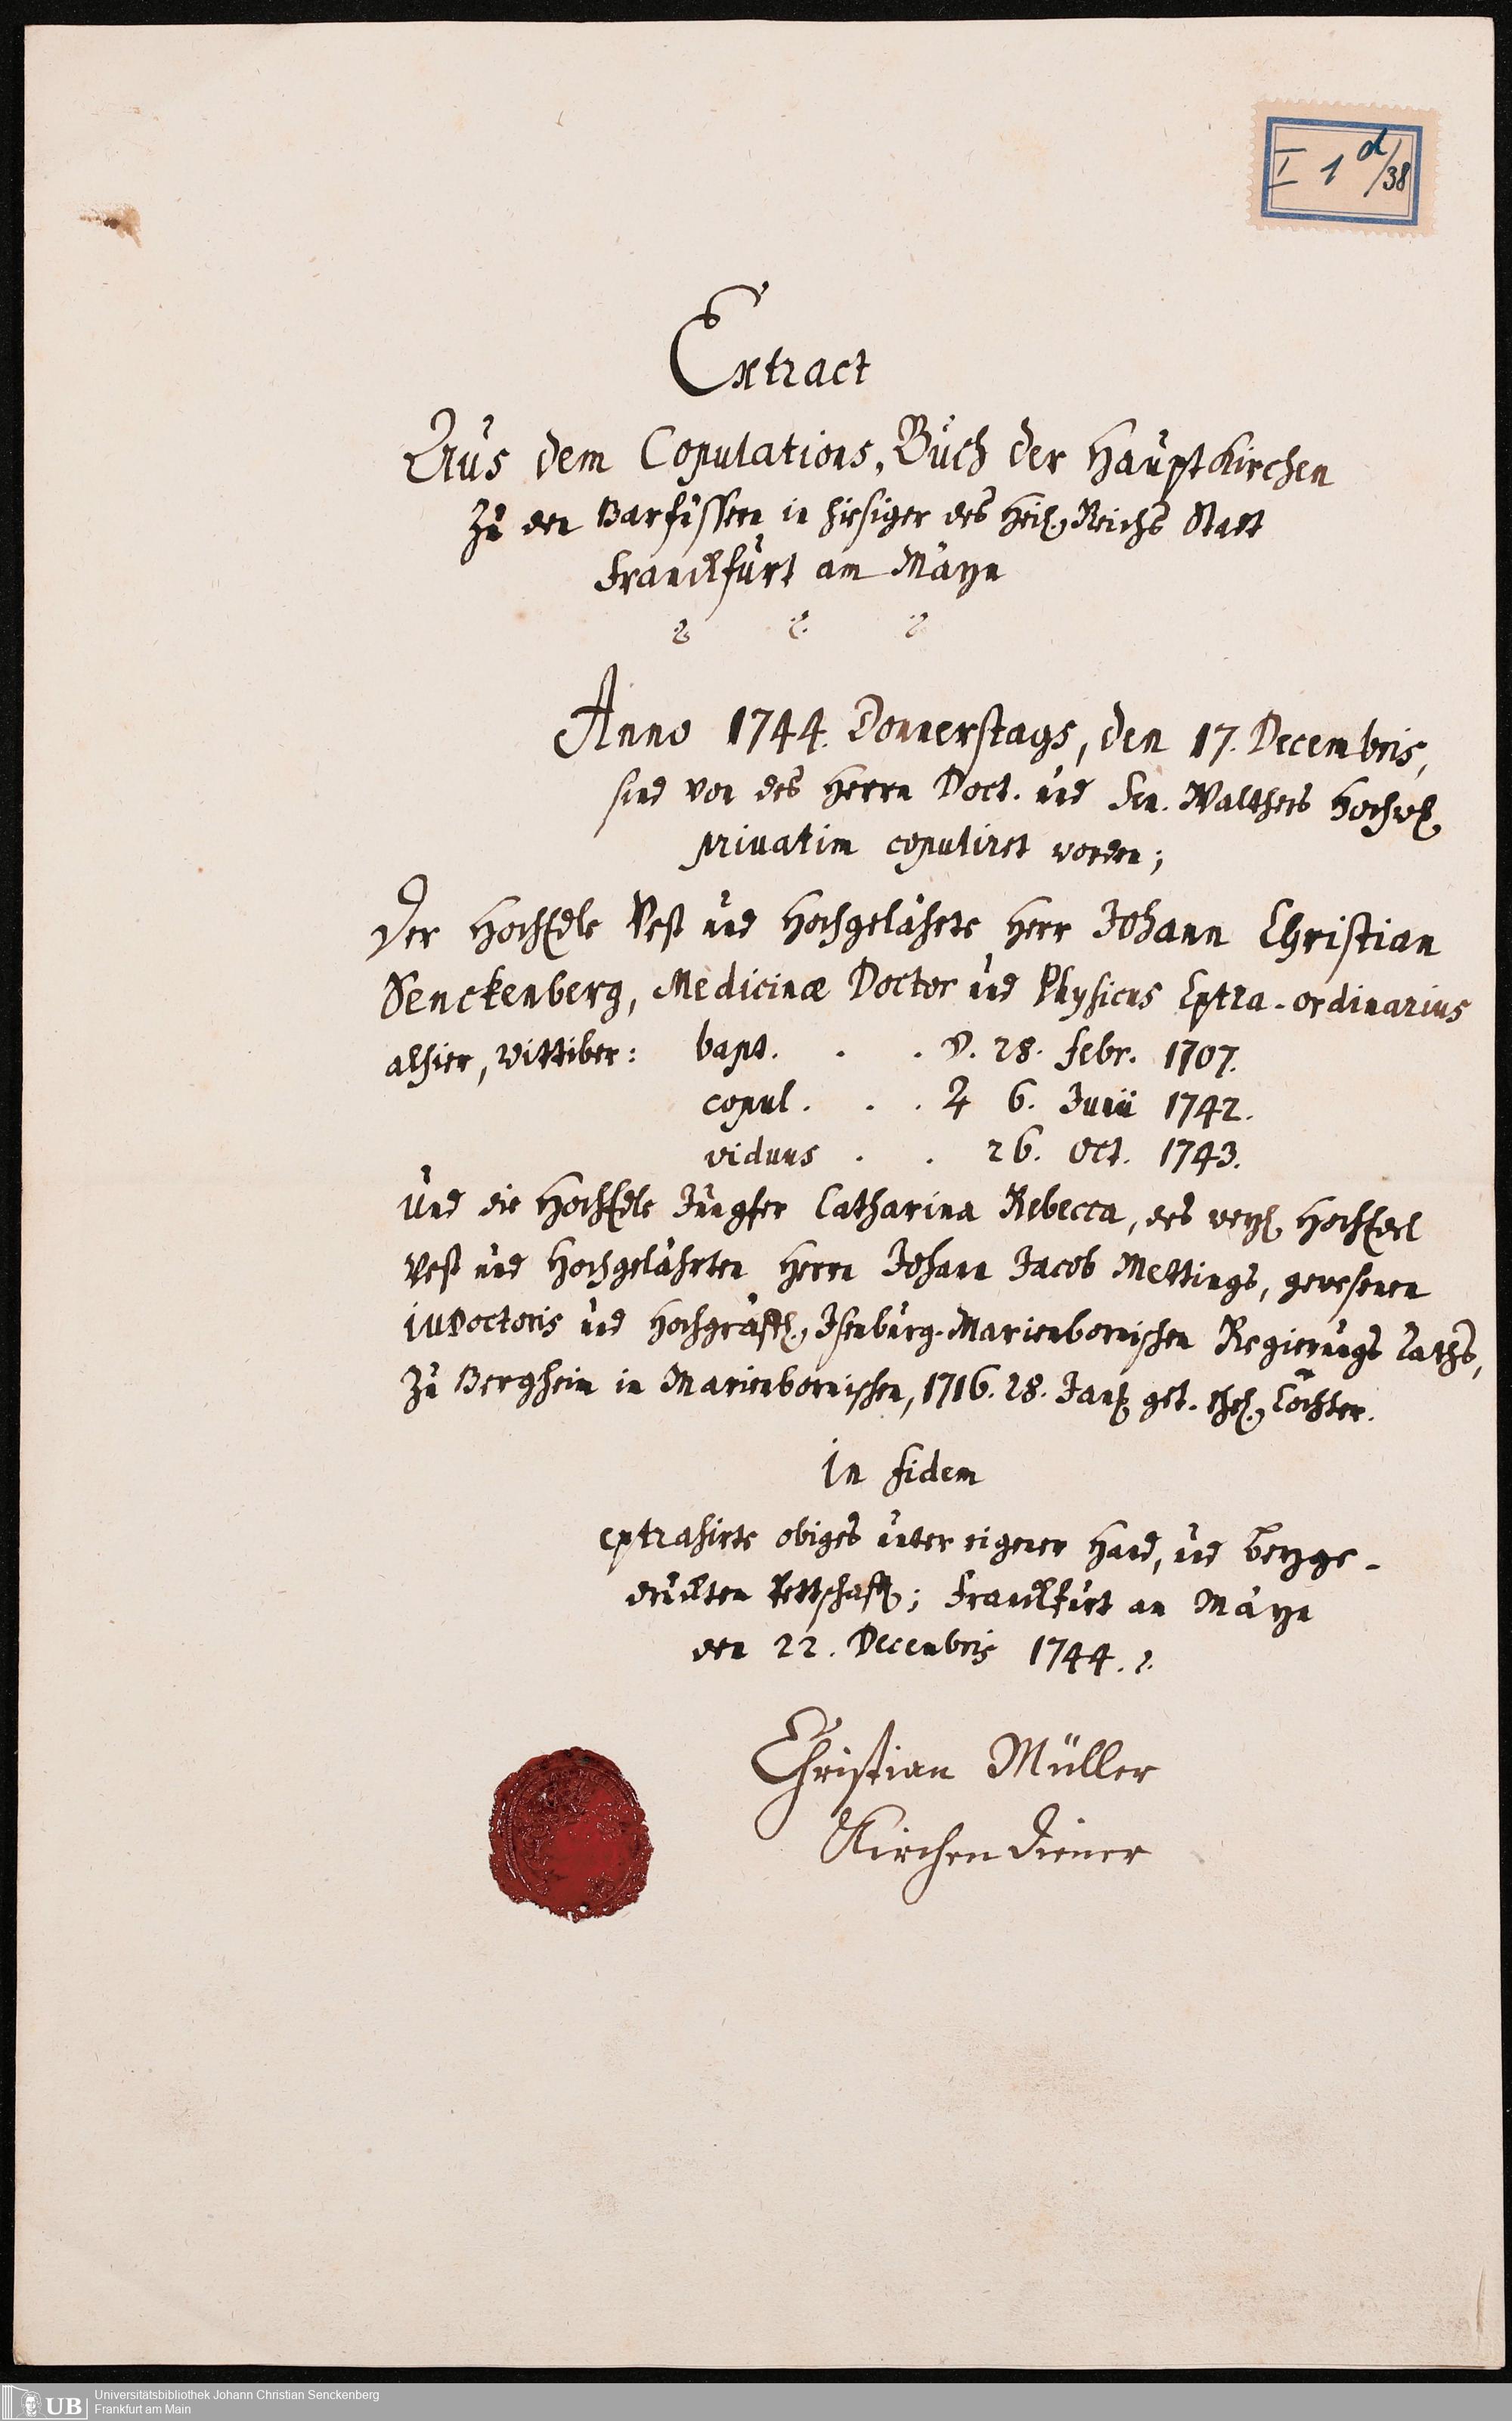 I 1 d/38
Extract
Aus dem Copulations-Buch der Hauptkirchen
Zu den Barfüssern in hiesiger des Heil. Reichs Statt
Franckfurt am Mayn
Anno 1744. Donnerstags, den 17. Decembris,
sind von des Herrn Doct. und Sen. Walthers Hochw.
privatim copuliret worden;
Der HochEdle Vest und Hochgelährte Herr Johann Christian
Senckenberg, Medicinæ Doctor und Physicus Extra-ordinarius
alhier, Wittiber: bapt. . . D. 28. Febr. 1707.
copul. . . ♃ 6. Junii 1742.
viduus . . 26. Oct. 1743.
Und die HochEdle Jungfer Catharina Rebecca, des weyl. HochEdel
Vest und Hochgelährten Herrn Johann Jacob Mettings, gewesenen
JUDoctoris und Hochgräfl. Isenburg-Marienbornischen Regierungs Raths,
Zu Bergheim im Marienbornischen, 1716. 28. Jan. get. ehel. Tochter.
in fidem
extrahirte obiges unter eigener Hand, und beyge-
druckten Pettschafft; Franckfurt am Mayn
den 22. Decembris 1744.
Christian Müller
Kirchen Diener
UB
Universitätsbibliothek Johann Christian Senckenberg
Frankfurt am Main